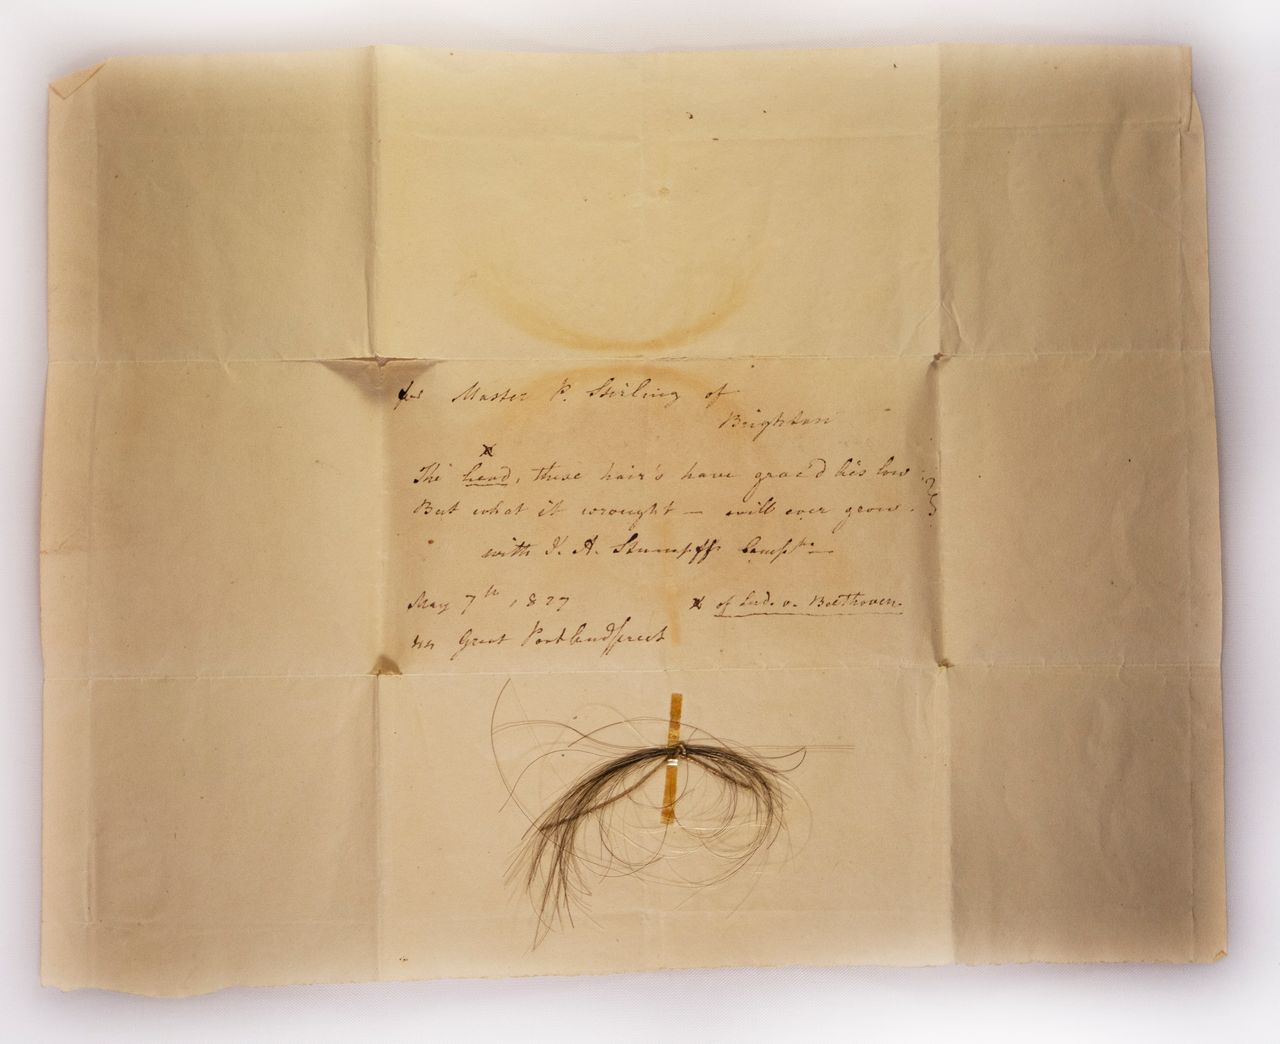 for Master P. Stirling of
Brighton
The head, these hair's have grac'd lies low
But what it wrought — will ever grow.
with J. A. Stumpff's Compts
May 7th, 1827
of Lud. v. Beethoven.
44 Great Portland street